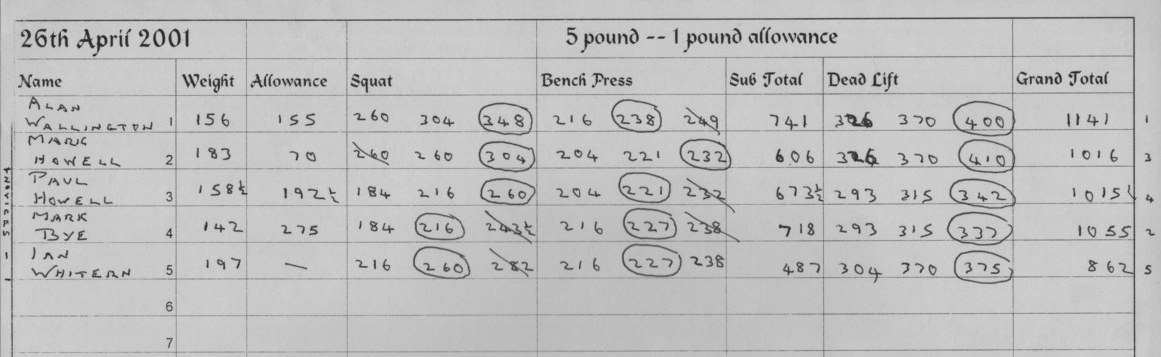 26th April 2001 5 pound -- 1 pound allowance
Name Weight Allowance Squat Bench Press Sub Total Dead Lift Grand Total
ALAN
WALLINGTON 1 156 155 260 304 348 216 238 249 741 326 370 400 1141 1
MARK
HOWELL 2 183 70 260 260 304 204 221 232 606 326 370 410 1016 3
PAUL
HOWELL 3 158½ 192½ 184 216 260 204 221 232 673½ 293 315 342 1015½ 4
MARK
BYE 4 142 275 184 216 243½ 216 227 238 718 293 315 337 1055 2
IAN
WHITERN 5 197 — 216 260 282 216 227 238 487 304 370 375 862 5
6
7